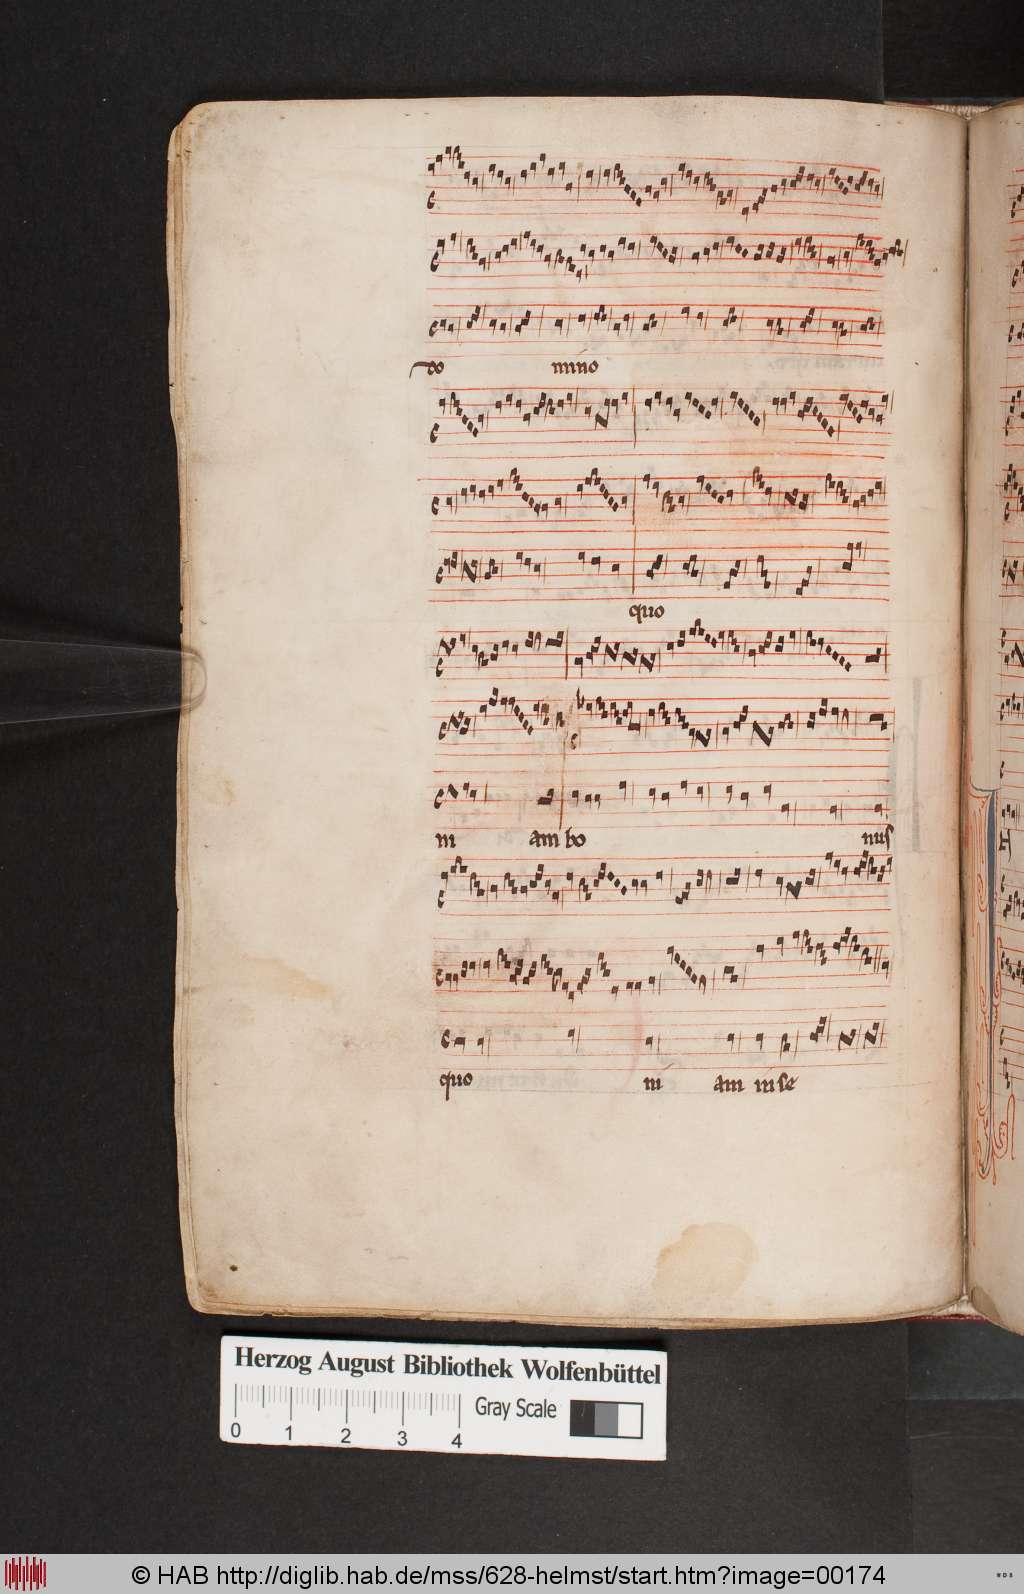 do mino
quo
ni am bo nus
quo ni am in se
Herzog August Bibliothek Wolfenbüttel
Gray Scale
0 1 2 3 4
© HAB http://diglib.hab.de/mss/628-helmst/start.htm?image=00174